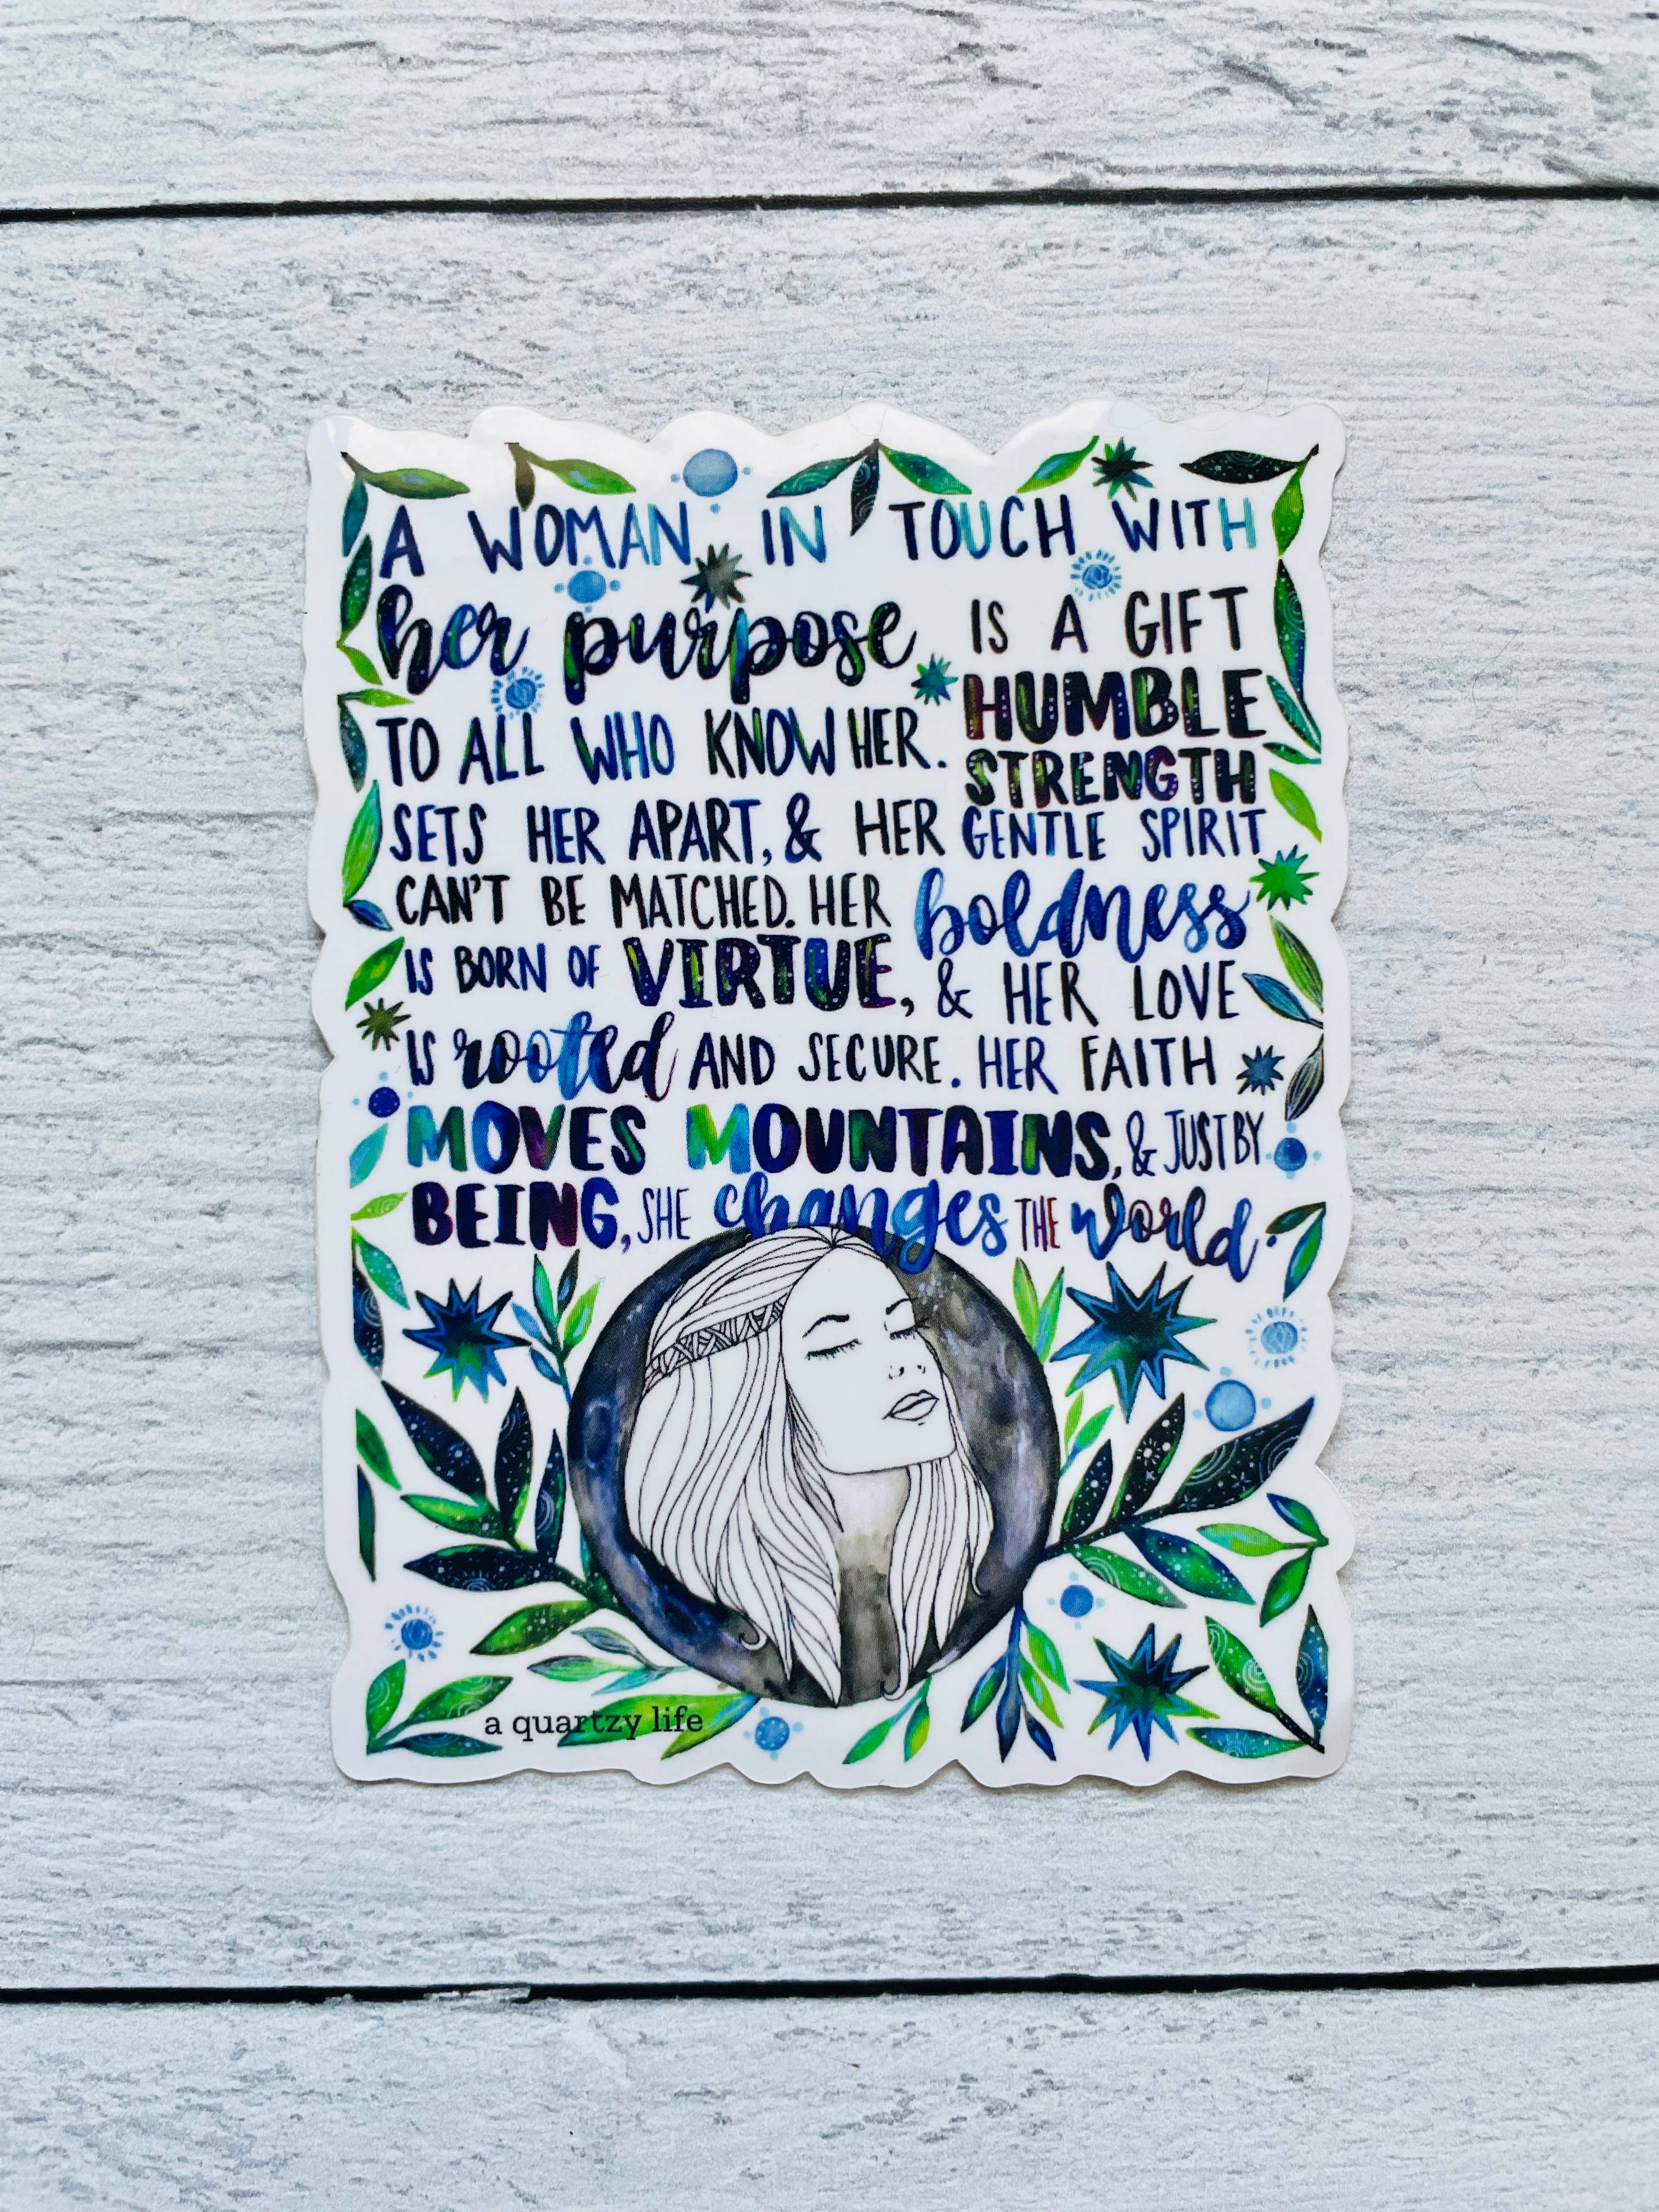 A WOMAN IN TOUCH WITH
her purpose IS A GIFT
TO ALL WHO KNOW HER. HUMBLE
STRENGTH
SETS HER APART, & HER GENTLE SPIRIT
CAN'T BE MATCHED. HER boldness
IS BORN OF VIRTUE, & HER LOVE
IS rooted AND SECURE. HER FAITH
MOVES MOUNTAINS, & JUST BY
BEING, SHE changes THE world.
a quartzy life